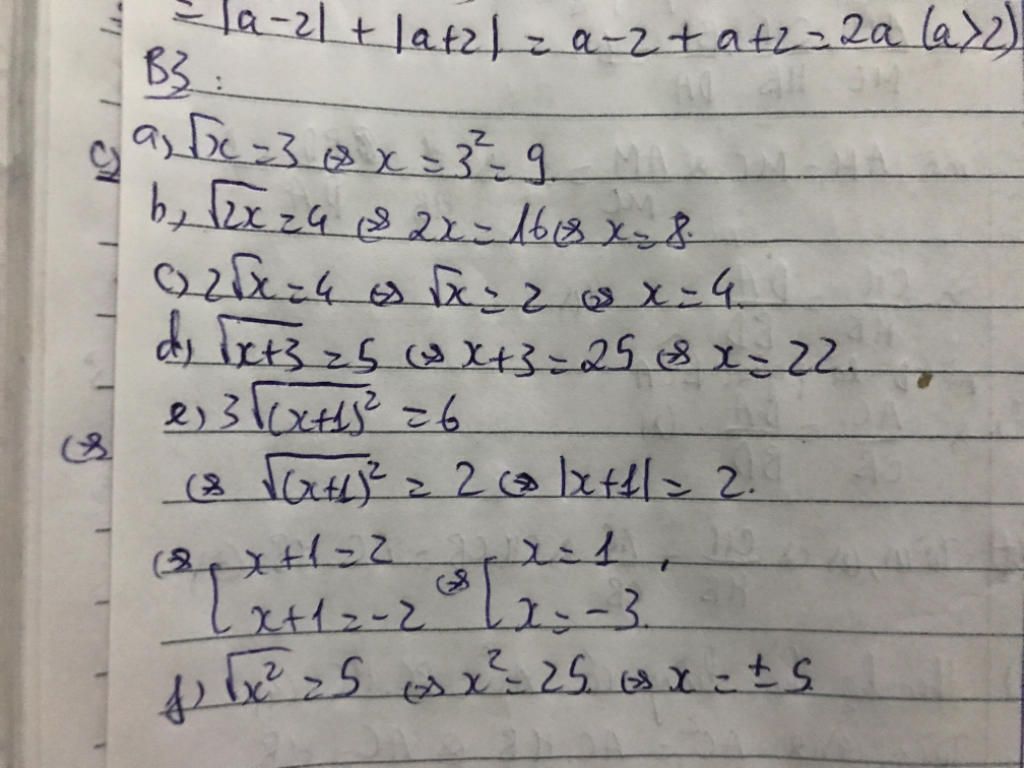 = |a-2| + |a+2| = a-2 + a+2 = 2a (a>2)
B3 :
a, √x = 3 ⇔ x = 3² = 9.
b, √2x = 4 ⇔ 2x = 16 ⇔ x = 8.
c) 2√x = 4 ⇔ √x = 2 ⇔ x = 4.
d, √x+3 = 5 ⇔ x+3 = 25 ⇔ x = 22.
e) 3√(x+1)² = 6
⇔ √(x+1)² = 2 ⇔ |x+1| = 2.
⇔ [ x+1 = 2 ⇔ [ x = 1 ,
x+1 = -2 x = -3.
f) √x² = 5 ⇔ x² = 25. ⇔ x = ± 5.